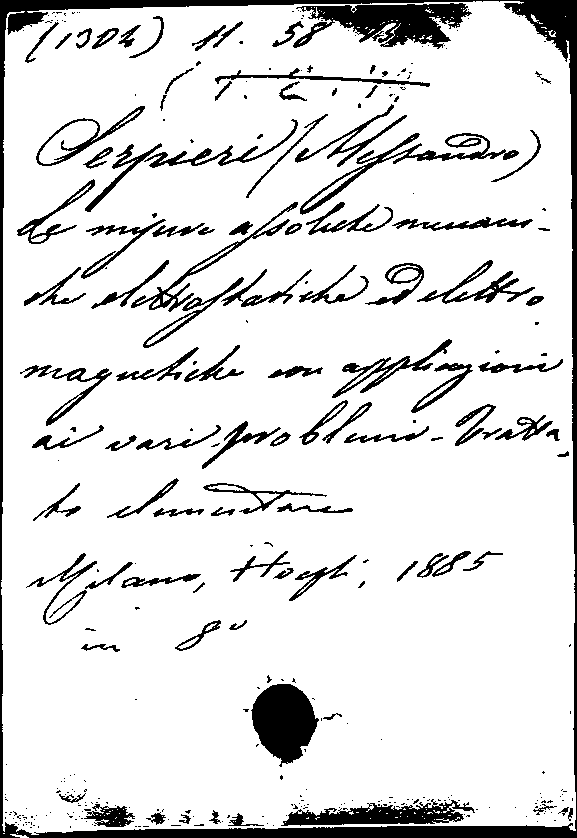 (1304) H. 58 B
Serpieri (Alessandro)
Le misure assolute meccani-
che elettrostatiche ed elettro
magnetiche con applicazioni
ai vari problemi - Tratta,
to elementare
Milano, Hoepli, 1885
in 8º